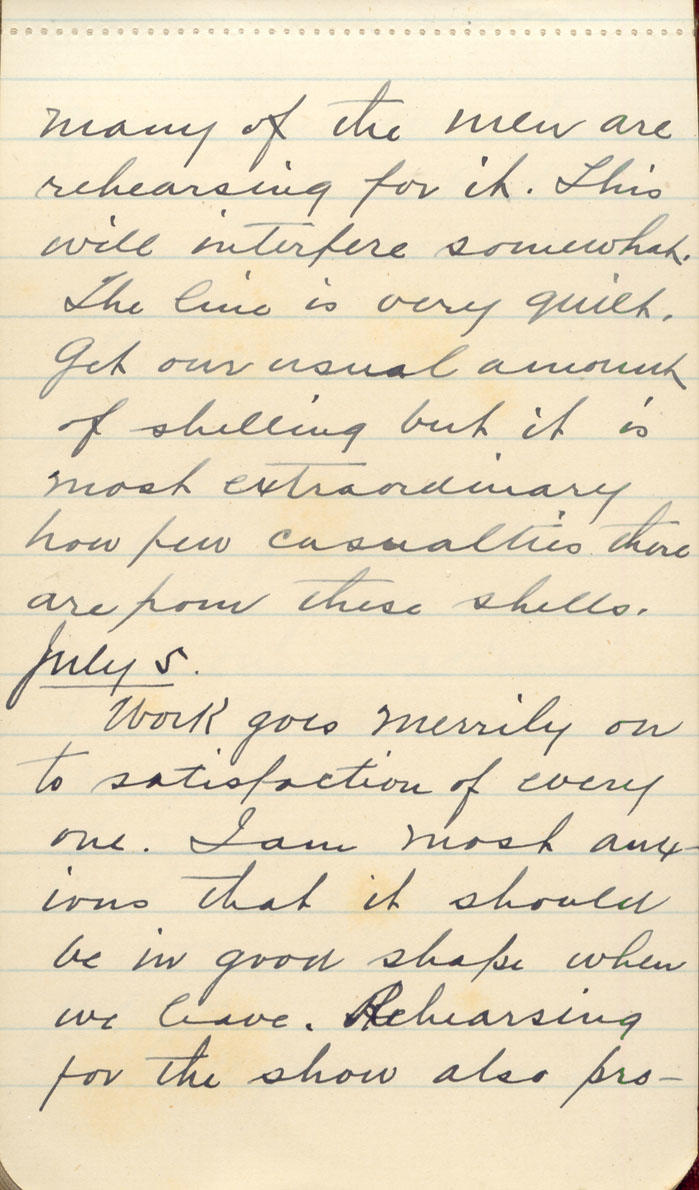 many of the men are
rehearsing for it. This
will interfere somewhat.
The line is very quiet.
Get our usual amount
of shelling but it is
most extraordinary
how few casualties there
are from these shells.
July 5.
Work goes merrily on
to satisfaction of every
one. I am most anx-
ious that it should
be in good shape when
we leave. Rehearsing
for the show also pro-